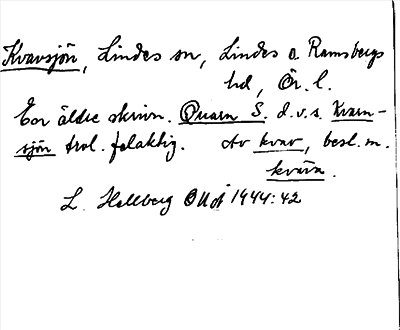 Kvavsjön, Lindes sn, Lindes o. Ramsbergs
hd, Ör. l.
Ev äldre skrivn. Quarn S. d.v.s. Kvarn-
sjön trol. felaktig. Av kvav, besl. m.
kväva.
L. Hellberg OUÅ 1944:42